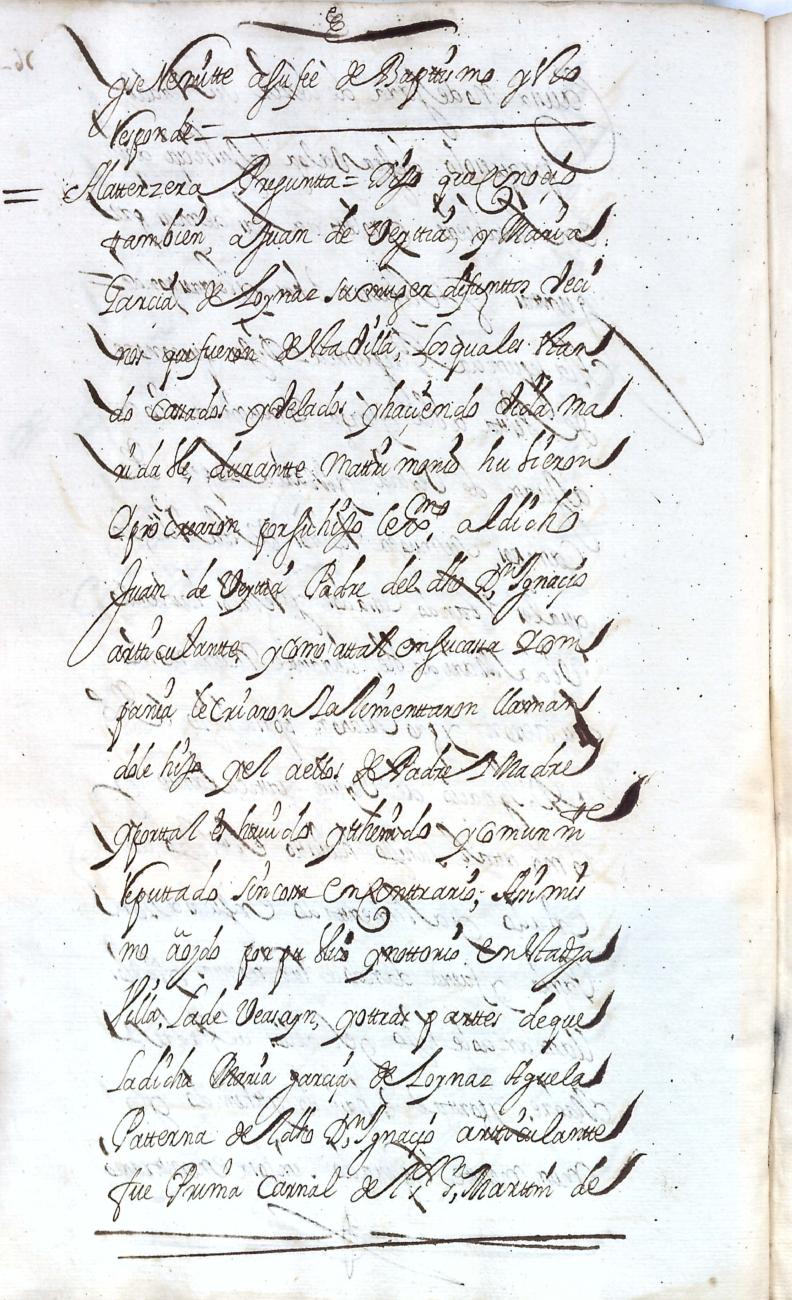 y se Remitte a su fee de Baptismo y Esto
Responde =
= A la terzera Preguntta = Dijo que Conoció
tambien, a Juan de Verttia, y Maria
Garcia de Loynaz su muger difunttos Veci
nos que fueron de Esta Villa, Los quales Estan
do Cassados y Velados y haciendo Vida Ma
ridable, durante Mattrimonio hubieron
Y procrearon por su hijo lexmo, al dicho
Juan de Verttia Padre del dho Dn Ignaçio
artticulante, y como a ttal en su cassa Y Com
pania le criaron Y alimenttaron llaman
dole hijo y el a ellos de Padre Y Madre
y por tal es havido y thenido y comunmte
Reputtado sin cossa en Conttrario; Asi mis
mo a oydo por publico y nottorio en Esta dha
Villa, La de Veasayn, y ottras parttes de que
La dicha Maria garcia de Loynaz Aguela
Patterna del dho Dn Ignaçio artticulantte
fue Prima Carnal del Sr Dn Martin de